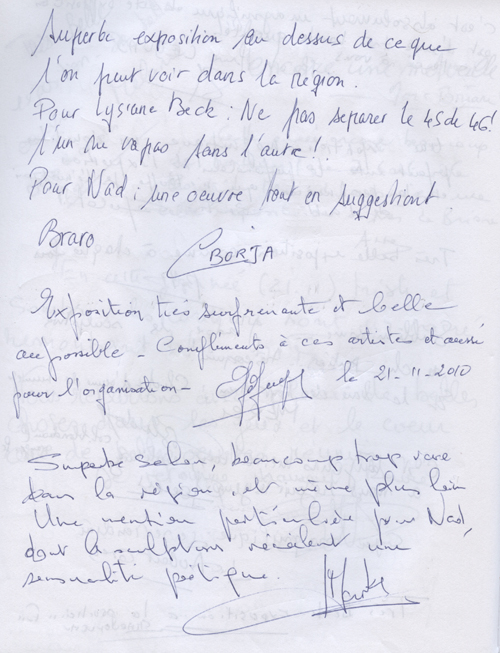 Superbe exposition au dessus de ce que
l'on peut voir dans la région.
Pour Lysiane Beck : Ne pas séparer le 45 de 46!
l'un ne va pas sans l'autre!!
Pour Nad : une oeuvre tout en suggestiont
Bravo
BORJA
Exposition très surprenante et belle
au possible - Compliments à ces artistes et aussi
pour l'organisation - le 21-11-2010
Superbe salon, beaucoup trop rare
dans la région et même plus loin
Une mention particulière pour Nad,
dont les sculptures révèlent une
sensualité poétique.